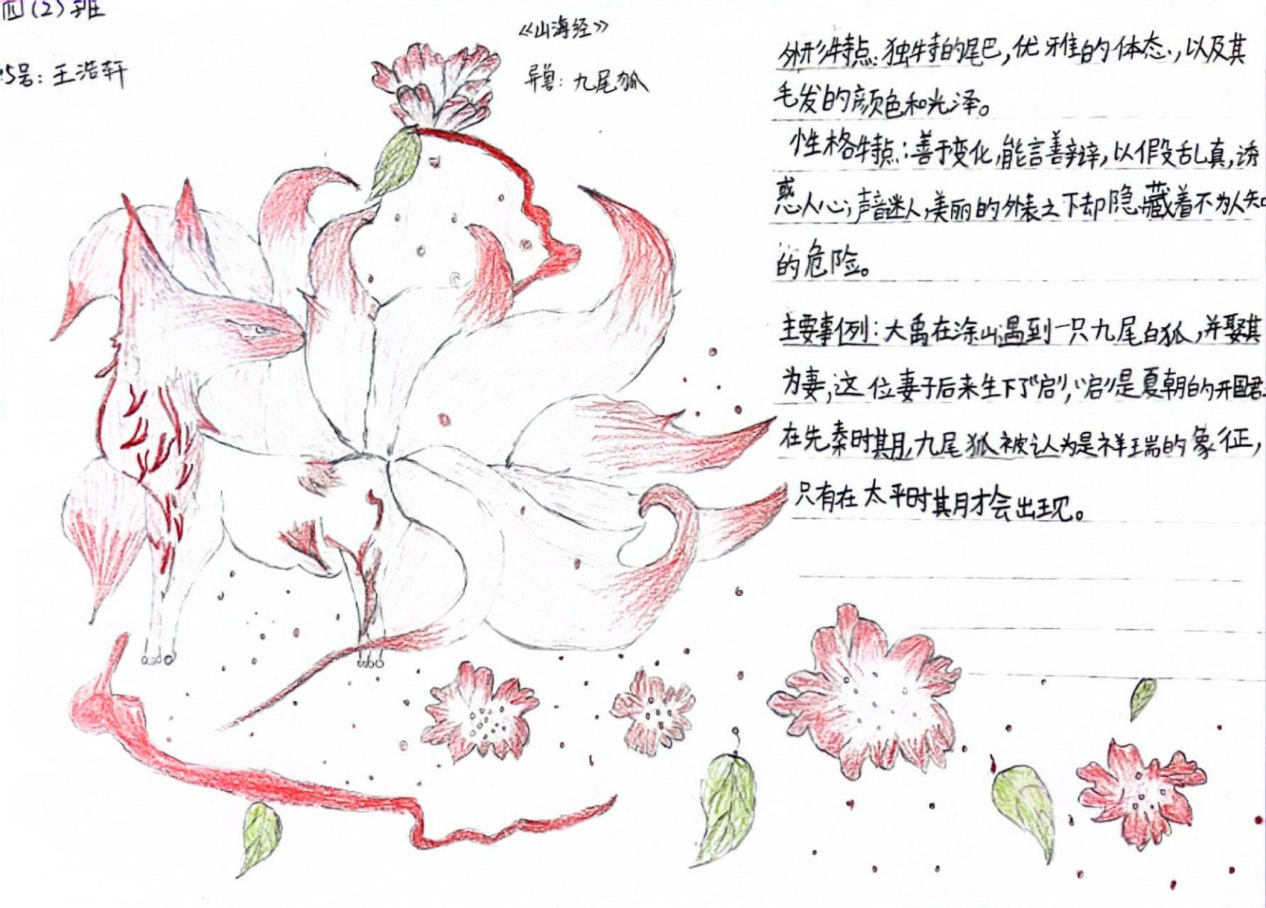 四(2)班
《山海经》
15号：王浩轩
异兽：九尾狐
外形特点：独特的尾巴，优雅的体态，以及其
毛发的颜色和光泽。
性格特点：善于变化，能言善辩，以假乱真，诱
惑人心，声音迷人，美丽的外表之下却隐藏着不为人知
的危险。
主要事例：大禹在涂山遇到一只九尾白狐，并娶其
为妻，这位妻子后来生下了"启"，"启"是夏朝的开国君
在先秦时期，九尾狐被认为是祥瑞的象征，
只有在太平时期才会出现。